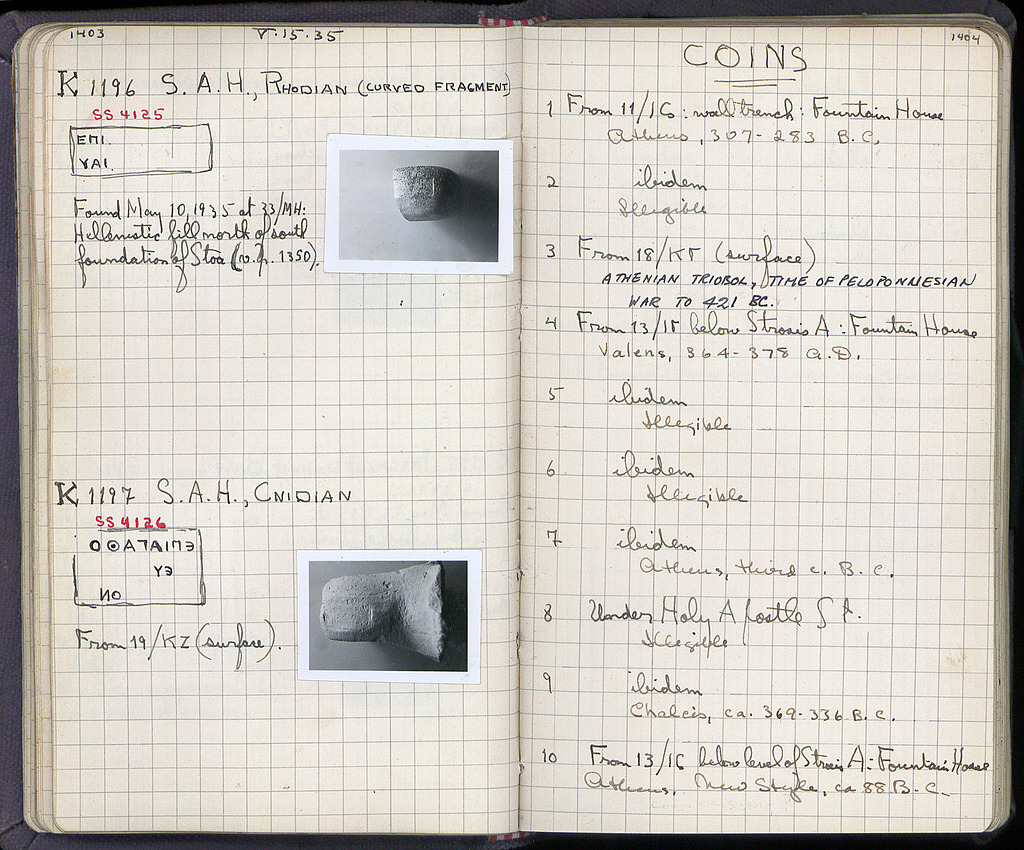 1403
V·15·35
K 1196 S. A. H., RHODIAN (CURVED FRAGMENT)
SS 4125
ΕΠΙ.
ΥΑΙ.
Found May 10, 1935 at 33/ΜΗ:
Hellenistic fill north of south
foundation of Stoa (v. p. 1350).
K 1197 S. A. H., CNIDIAN
SS 4126
From 19/ΚΖ (surface).
1404
COINS
1 From 11/ΙϚ : wall trench : Fountain House
Athens, 307-283 B.C.
2 ibidem
Illegible
3 From 18/ΚΓ (surface)
ATHENIAN TRIOBOL, TIME OF PELOPONNESIAN
WAR TO 421 BC.
4 From 13/ΙΓ below Strosis A : Fountain House
Valens, 364-378 A.D.
5 ibidem
Illegible
6 ibidem
Illegible
7 ibidem
Athens, third c. B.C.
8 Under Holy Apostle St.
Illegible
9 ibidem
Chalcis, ca. 369-336 B.C.
10 From 13/ΙϚ below level of Strosis A : Fountain House
Athens, New Style, ca 88 B.C.